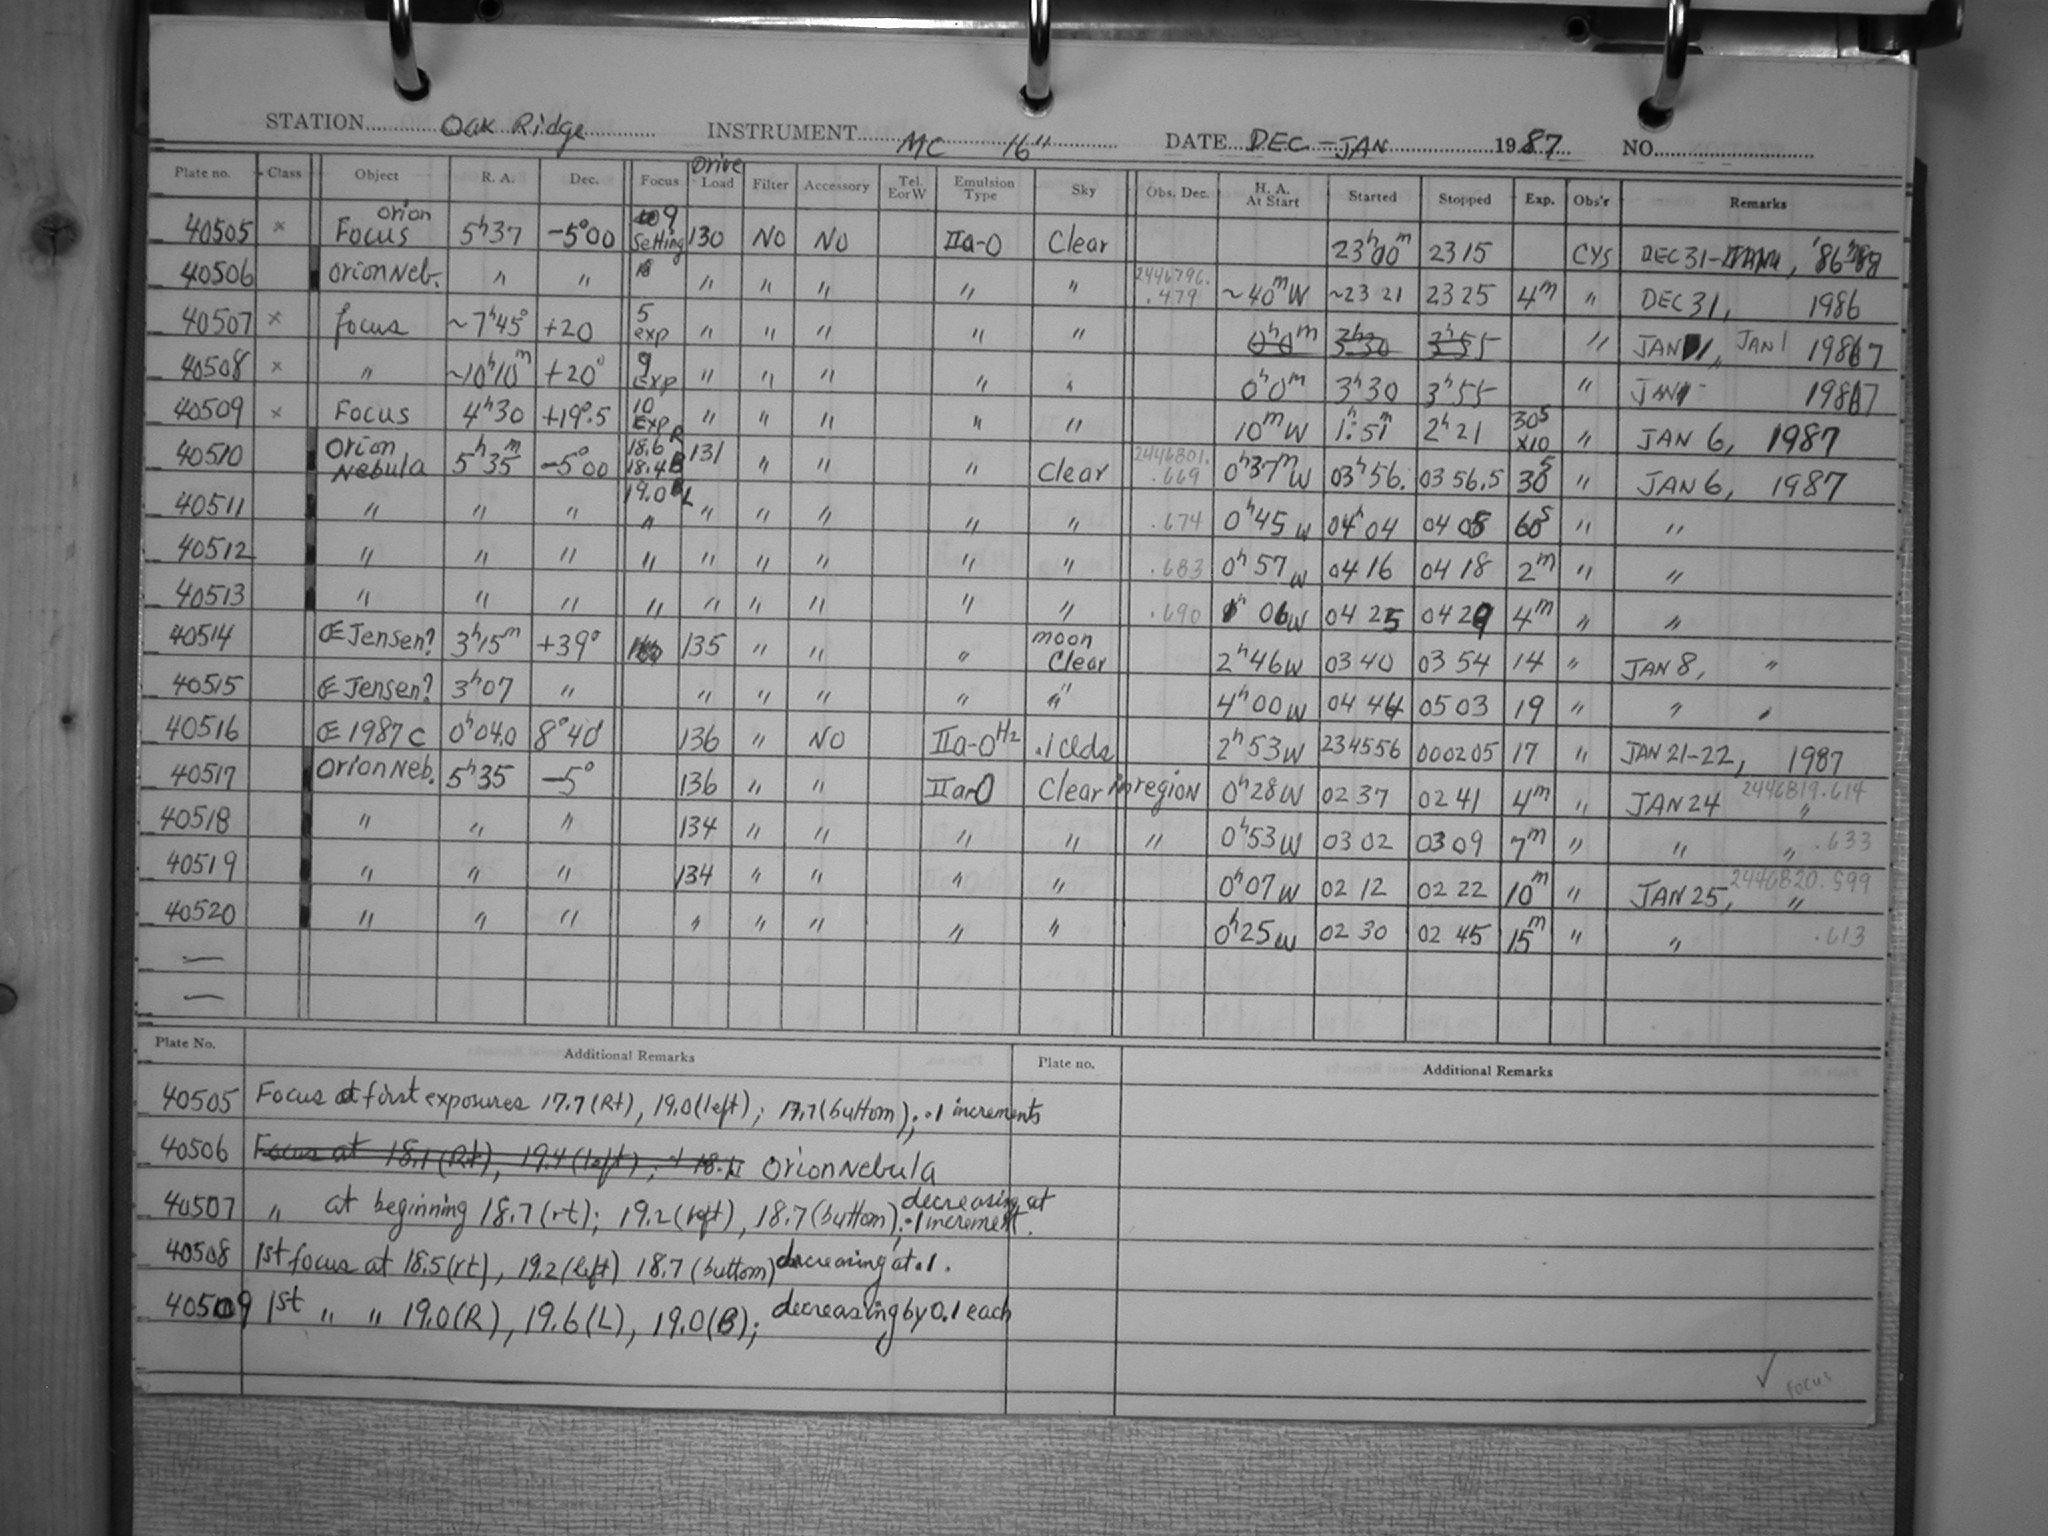 STATION Oak Ridge INSTRUMENT MC 16" DATE DEC-JAN 1987 NO.
Plate no. Class Object R. A. Dec. Focus Drive Load Filter Accessory Tel. EorW Emulsion Type Sky Obs. Dec. H. A. At Start Started Stopped Exp. Obs'r Remarks
40505 x Orion Focus 5h37 -5°00 9 Setting 130 NO NO IIa-O Clear 23h00m 2315 CYS DEC 31- '86
40506 Orion Neb. " " " " " " " 2446796. .479 ~40mW ~23 21 2325 4m " DEC 31, 1986
40507 x focus ~7h45 +20 5 exp " " " " " 0h0m 3h30 3h55 " JAN 1, JAN 1 1987
40508 x " ~10h10m +20° 9 Exp " " " " " 0h0m 3h30 3h55 " JAN 1987
40509 x Focus 4h30 +19°.5 10 Exp " " " " " 10mW 1h51m 2h21 30s x10 " JAN 6, 1987
40510 Orion Nebula 5h35m -5°00 18.6R 18.4B 131 " " " Clear 2446801. .669 0h37mW 03h56. 03 56.5 30s " JAN 6, 1987
40511 " " " 19.0L " " " " " " .674 0h45W 04h04 04 05 60s " "
40512 " " " " " " " " " .683 0h57W 04 16 04 18 2m " "
40513 " " " " " " " " " .690 1h06W 04 25 04 29 4m " "
40514 Œ Jensen? 3h15m +39° 135 " " " moon Clear 2h46W 03 40 03 54 14 " JAN 8, "
40515 Œ Jensen? 3h07 " " " " " " 4h00W 04 44 05 03 19 " "
40516 Œ 1987c 0h04.0 8°40' 136 " NO IIa-O H2 .1 clds 2h53W 234556 000205 17 " JAN 21-22, 1987
40517 Orion Neb. 5h35 -5° 136 " " IIa-O Clear in region 0h28W 02 37 02 41 4m " JAN 24 " 2446819.614
40518 " " " 134 " " " " " 0h53W 03 02 03 09 7m " " " .633
40519 " " " 134 " " " " 0h07W 02 12 02 22 10m " JAN 25, " 2446820.599
40520 " " " " " " " " 0h25W 02 30 02 45 15m " " .613
Plate No. Additional Remarks Plate no. Additional Remarks
40505 Focus at first exposures 17.7(Rt), 19.0(left); 17.7(buttom); .1 increments
40506 Focus at 18.1(Rt), 19.4(left); Orion Nebula
40507 " at beginning 18.7(rt); 19.2(left), 18.7(buttom); decreasing at .1 increment.
40508 1st focus at 18.5(rt), 19.2(left) 18.7(buttom) decreasing at .1.
40509 1st " " 19.0(R), 19.6(L), 19.0(B); decreasing by 0.1 each
✓ Focus